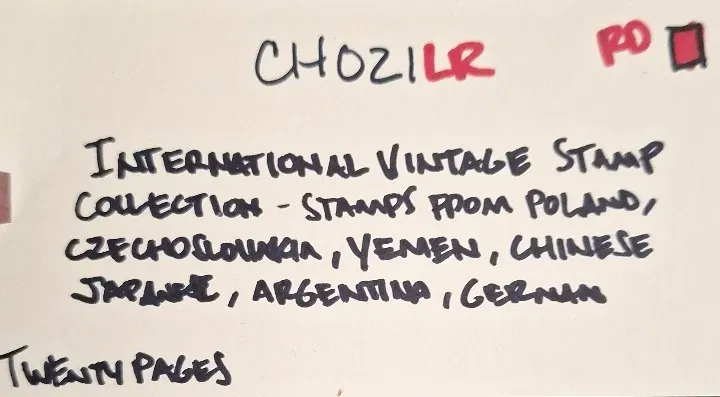 CH021LR RD
INTERNATIONAL VINTAGE STAMP
COLLECTION - STAMPS FROM POLAND,
CZECHOSLOVAKIA, YEMEN, CHINESE
JAPANESE, ARGENTINA, GERMAN
TWENTY PAGES